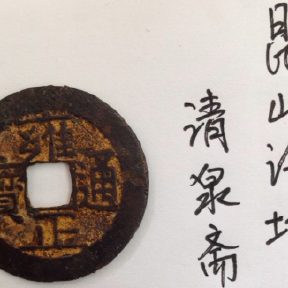 昆山
清泉斋
雍正通寶